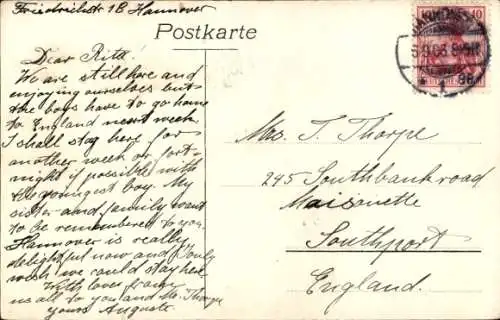 Friedrichstr 1B Hannover
Postkarte
Dear Rita!
We are still here and
enjoying ourselves but
the boys have to go home
to England next week
I shall stay here for
another week or fort-
night if possible with
the youngest boy. My
sister and family want
to be remembered to you.
Hannover is really
delightful now and I only
wish we could stay here
With love from
us all to you and Mr. Thorpe
yours Auguste.
Mrs. T. Thorpe
245 Southbank road
Maisonette
Southport
England.
HANNOVER
10
10